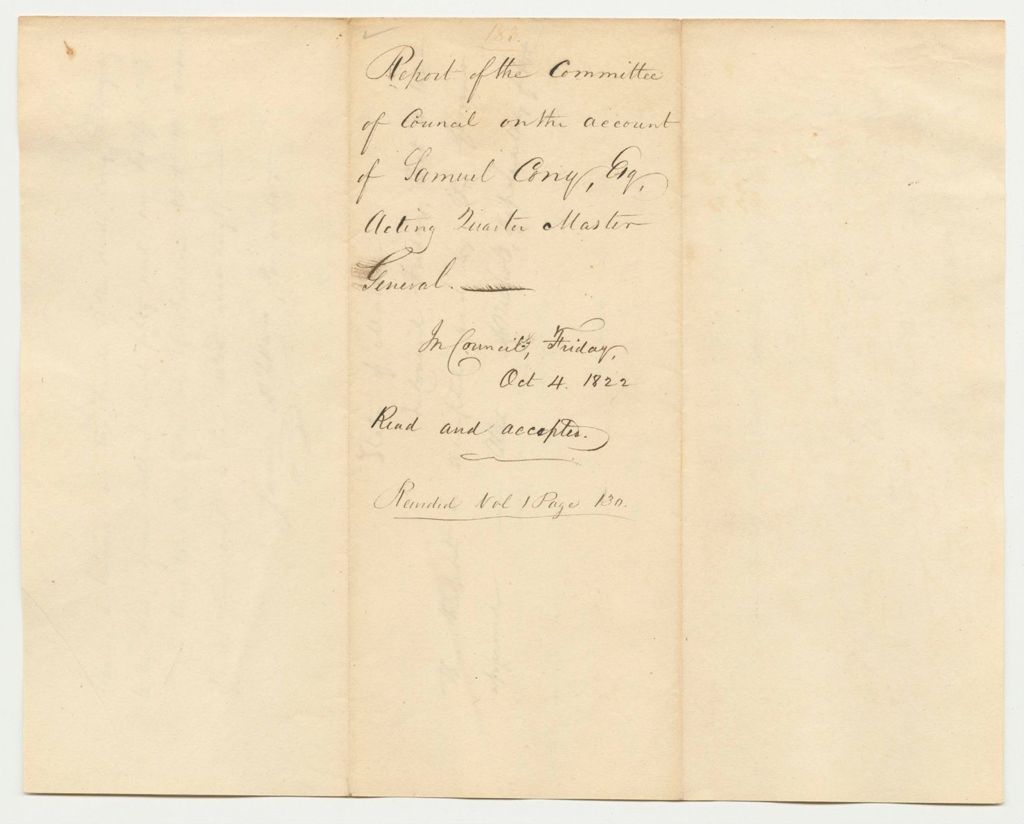 Report of the Committee
of Council on the account
of Samuel Cony, Esq,
Acting Quarter Master
General.
In Council, Friday,
Oct 4. 1822
Read and accepted.
Recorded Vol 1 Page 130.